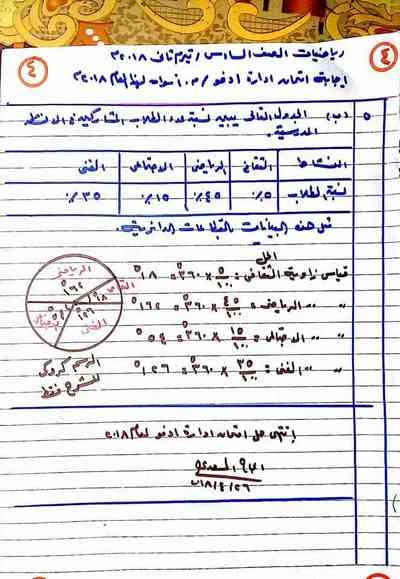 ٤
٤
رياضيات الصف السادس / تيرم ثان ٢٠١٨
إجابة امتحان إدارة إدفو / م. أسوان لهذا العام ٢٠١٨
٥ (ب) الجدول التالى يبين نسبة عدد الطلاب المشاركين فى الأنشطة
المدرسية.
النشاط الثقافى الرياضى الاجتماعى الفنى
نسبة الطلاب ٥٪ ٤٥٪ ١٥٪ ٣٥٪
مثل هذه البيانات بالقطاعات الدائرية.
الحل
قياس زاوية الثقافى = ٥/١٠٠ × ٣٦٠° = ١٨°
〃 〃 الرياضى = ٤٥/١٠٠ × ٣٦٠° = ١٦٢°
〃 〃 الاجتماعى = ١٥/١٠٠ × ٣٦٠° = ٥٤°
〃 〃 الفنى = ٣٥/١٠٠ × ٣٦٠° = ١٢٦°
الرياضى
١٦٢°
الثقافى
١٨°
الفنى
١٢٦°
٥٤°
الرسم كروكى
للشرح فقط
إنتهى حل امتحان إدارة إدفو لعام ٢٠١٨
٢٠١٨/٤/٢٦